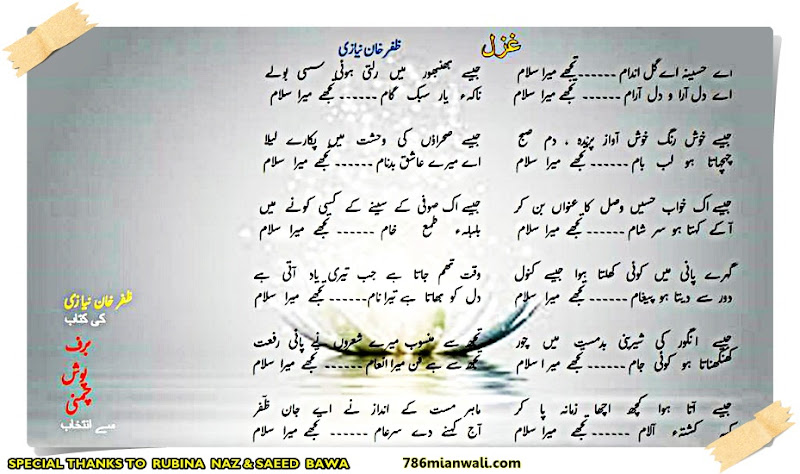 غزل
ظفر خان نیازی
اے حسینہ اے گل اندام ------ تجھے میرا سلام
اے دل آرا و دل آرام ------ تجھے میرا سلام
جیسے بھنبھور میں رلتی ہوئی سسی بولے
ناکہء یار سبک گام ------ تجھے میرا سلام
جیسے خوش رنگ خوش آواز پرندہ ، دم صبح
چہچہاتا ہو لب بام ------ تجھے میرا سلام
جیسے صحراؤں کی وحشت میں پکارے لیلا
اے میرے عاشق بدنام ------ تجھے میرا سلام
جیسے اک خواب حسیں وصل کا عنواں بن کر
آکے کہتا ہو سر شام ------ تجھے میرا سلام
جیسے اک صوفی کے سینے کے کسی کونے میں
بلبلہء طمع خام ------ تجھے میرا سلام
گہرے پانی میں کوئی کھلتا ہوا جیسے کنول
دور سے دیتا ہو پیغام ------ تجھے میرا سلام
وقت تھم جاتا ہے جب تیری یاد آتی ہے
دل کو بھاتا ہے تیرا نام ------ تجھے میرا سلام
جیسے انگور کی شیرینی بدمست میں چور
کھنکھناتا ہو کوئی جام ------ تجھے میرا سلام
تجھ سے منسوب میرے شعروں نے پائی رفعت
تجھ سے ہے فن میرا انعام ------ تجھے میرا سلام
جیسے آتا ہوا کچھ اچھا زمانہ پا کر
کشتہء آلام ------ تجھے میرا سلام
ماہر مست کے انداز نے اپے جان ظفر
آج کہنے دے سرعام ------ تجھے میرا سلام
ظفر خان نیازی
کی کتاب
برف
پوش
چمنی
سے انتخاب
SPECIAL THANKS TO RUBINA NAZ & SAEED BAWA
786mianwali.com